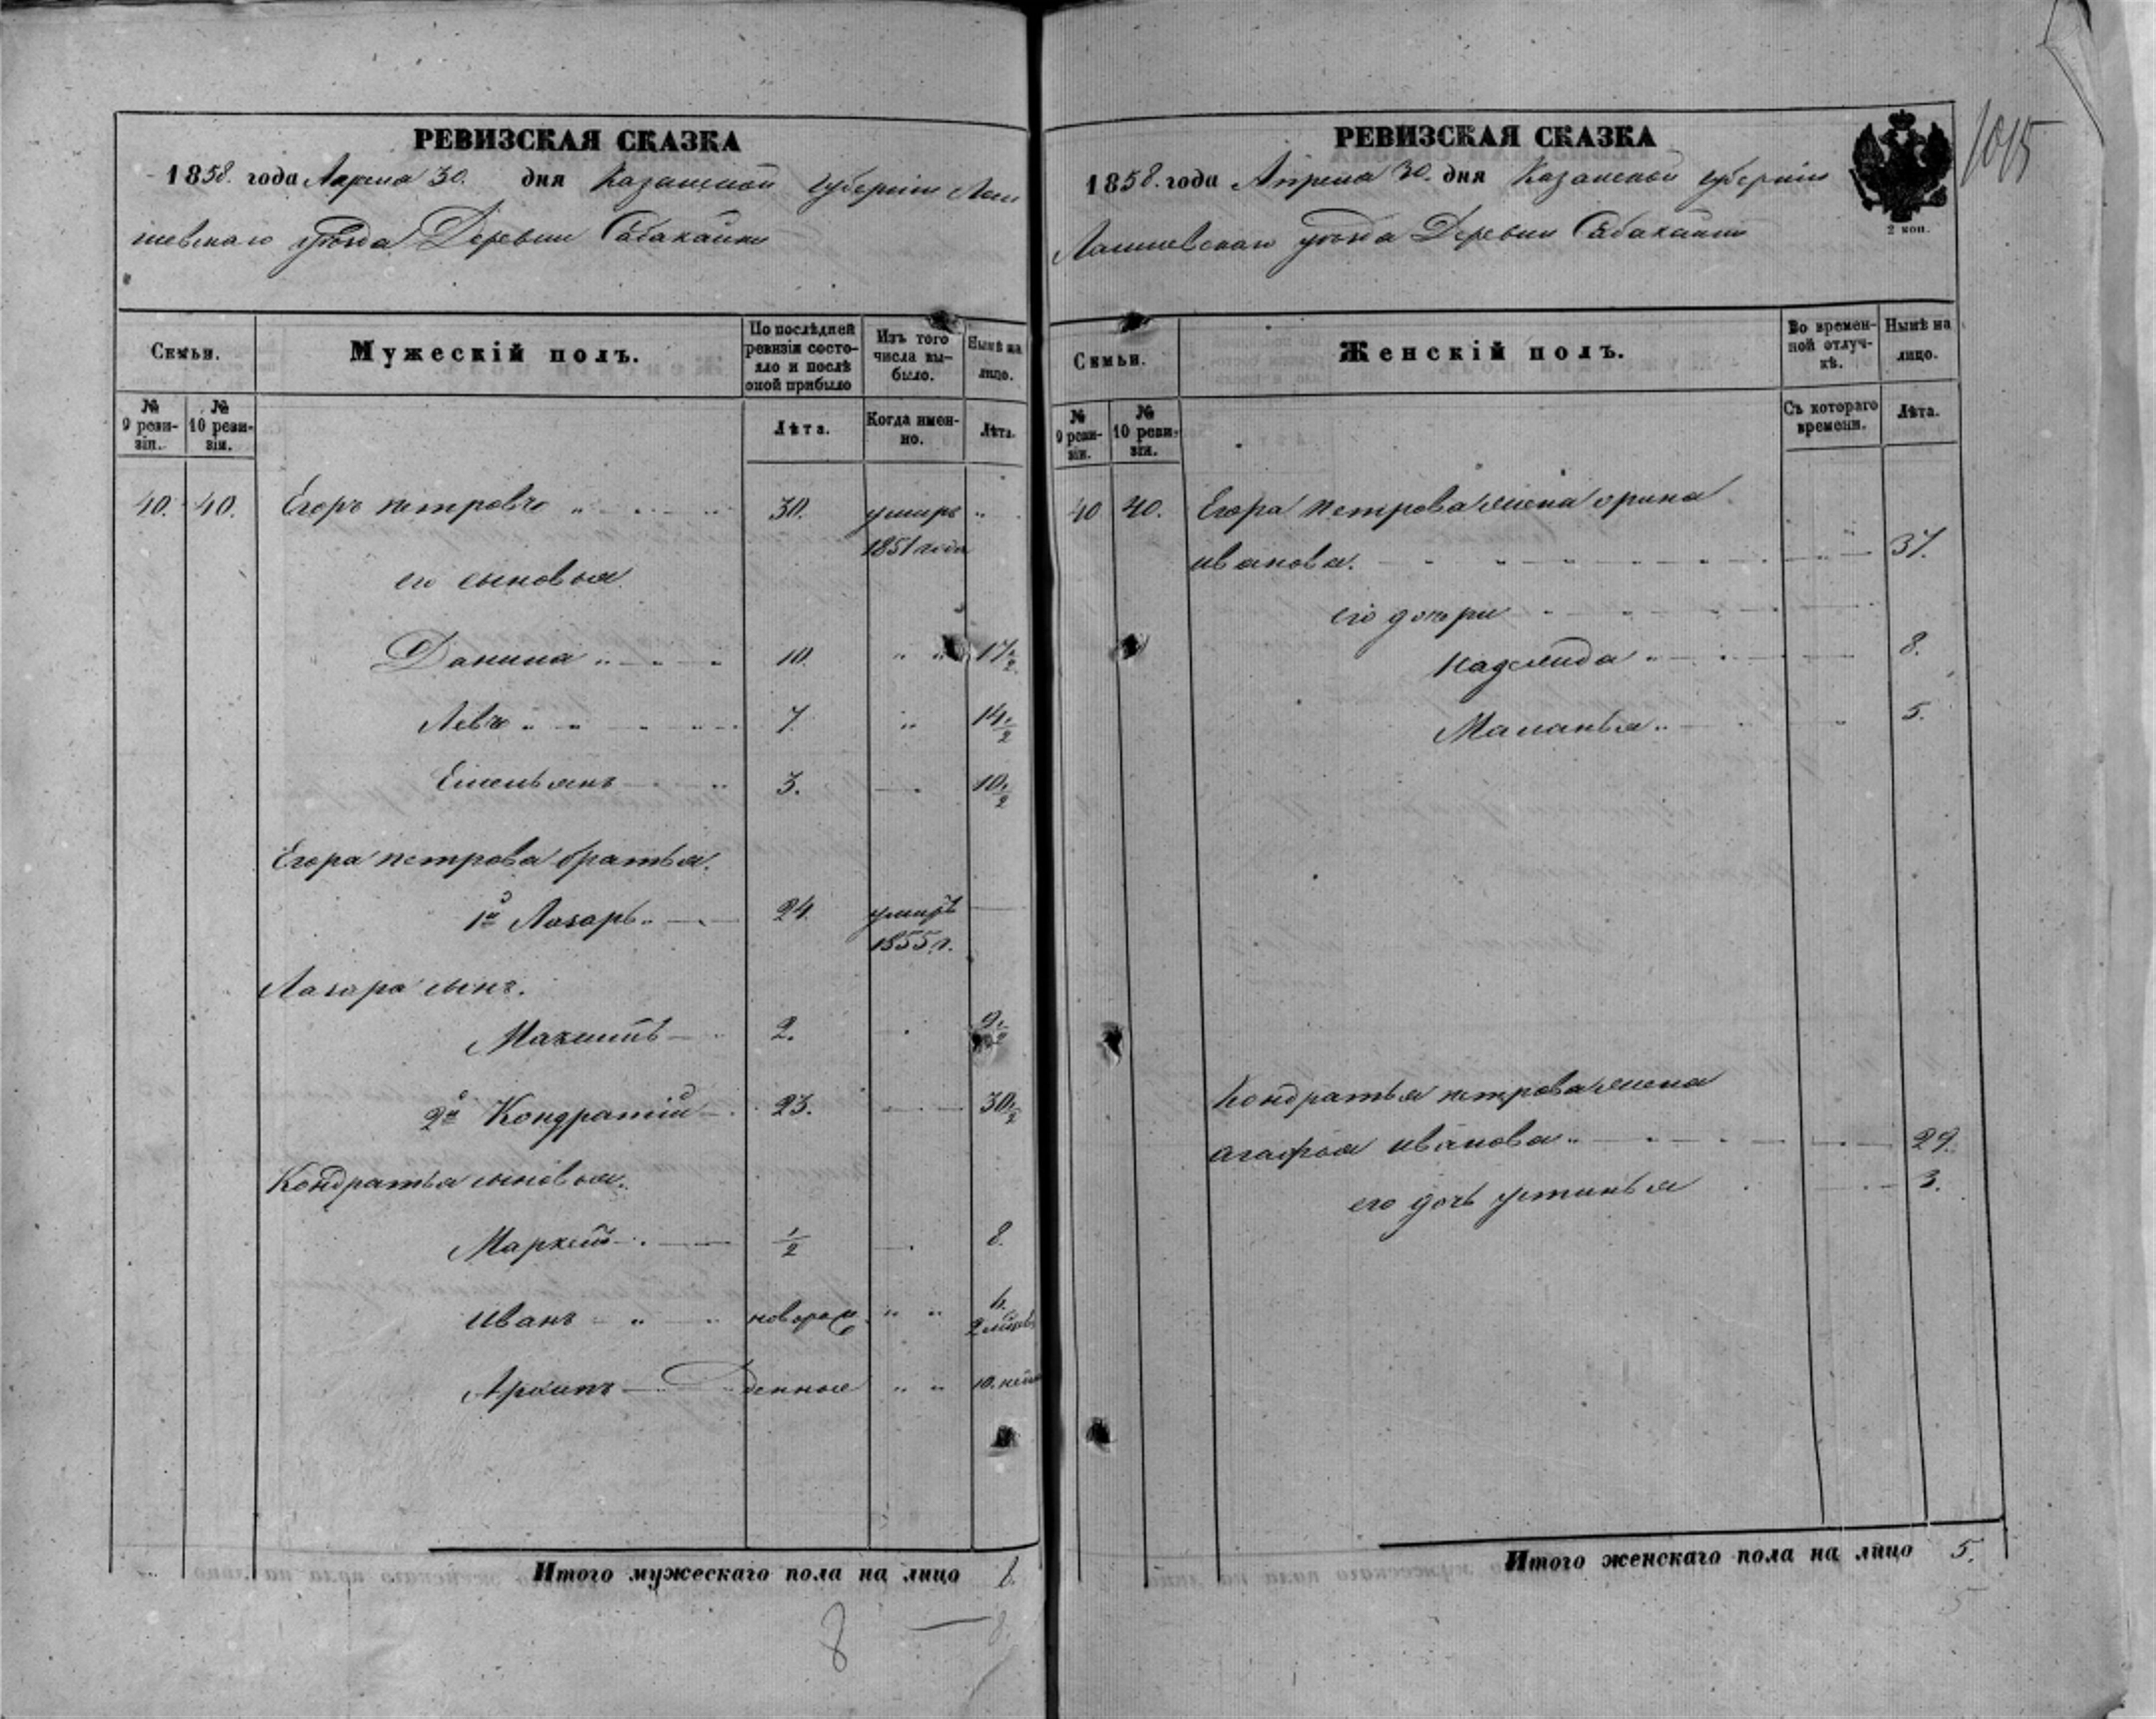 РЕВИЗСКАЯ СКАЗКА
1858. года Апреля 30. дня Казанской губерніи Лаи
шевскаго уѣзда Деревни Сабакайки
Семьи.
Мужескій полъ.
По послѣдней ревизіи состояло и послѣ оной прибыло
Изъ того числа выбыло.
Нынѣ на лицо.
№ 9 ревизіи.
№ 10 ревизіи.
Лѣта.
Когда именно.
Лѣта.
40. 40. Егоръ петровъ 30. умиръ
1851 года
его сыновья
Данила 10. 17½
Левъ 7. 14½
Емельянъ 3. 10½
Егора петрова братья.
1й Лазарь 24. умиръ
1855 г.
Лазаря сынъ.
Максимъ 2. 9½
2й Кондратій 23. 30½
Кондратья сыновья.
Маркелъ ½ 8.
Иванъ новорож
Архипъ денные 10. нед
Итого мужескаго пола на лицо 8.
8 — 8.
РЕВИЗСКАЯ СКАЗКА
1858. года Апреля 30. дня Казанской губерніи
Лаишевскаго уѣзда Деревни Сабакайки
2 коп.
1015
Семьи.
Женскій полъ.
Во временной отлучкѣ.
Нынѣ на лицо.
№ 9 ревизіи.
№ 10 ревизіи.
Съ котораго времени.
Лѣта.
40 40. Егора петрова жена орина
иванова. 37.
его дочери
Надежда 8.
Маланья 5.
Кондратья петрова жена
агафья иванова 29.
его дочь устинья 3.
Итого женскаго пола на лицо 5.
5